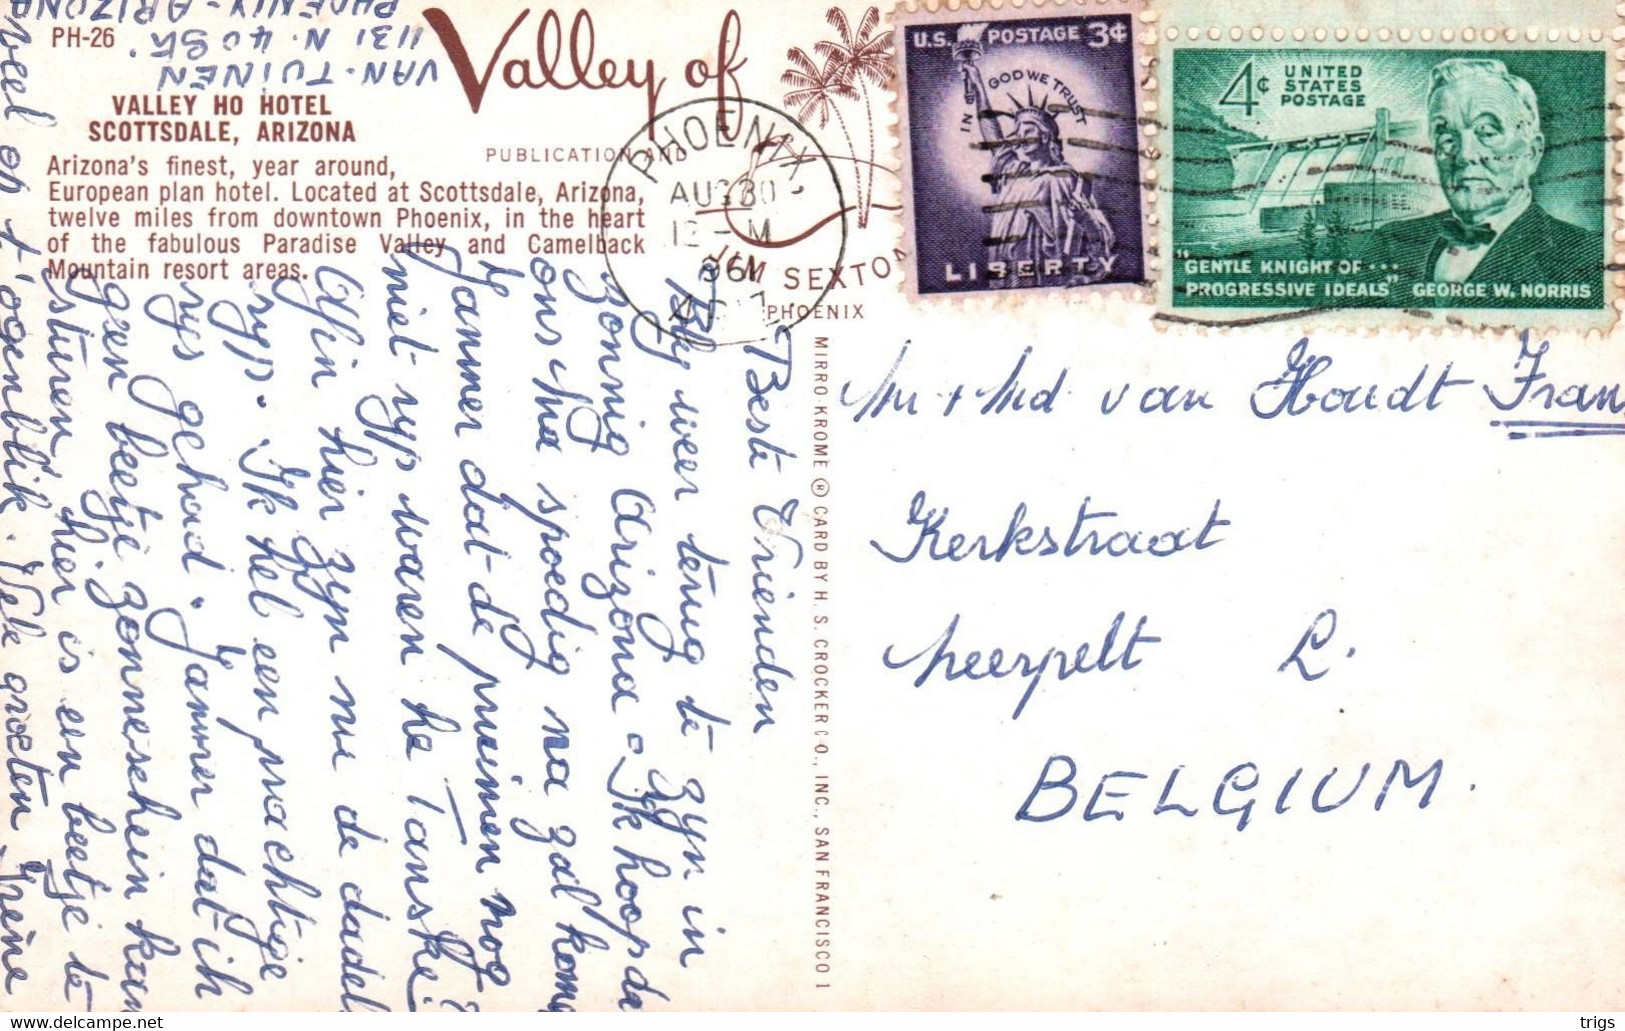 PH-26
VAN-TUINEN
1131 N. 40 St.
PHOENIX-ARIZONA
VALLEY HO HOTEL
SCOTTSDALE, ARIZONA
Arizona's finest, year around,
European plan hotel. Located at Scottsdale, Arizona,
twelve miles from downtown Phoenix, in the heart
of the fabulous Paradise Valley and Camelback
Mountain resort areas.
Valley of
PUBLICATION AND
JIM SEXTON
PHOENIX
PHOENIX
AUG 30
1961
U.S. POSTAGE 3¢
IN GOD WE TRUST
LIBERTY
4¢ UNITED
STATES
POSTAGE
"GENTLE KNIGHT OF ...
PROGRESSIVE IDEALS" GEORGE W. NORRIS
MIRRO-KROME ® CARD BY H. S. CROCKER CO., INC., SAN FRANCISCO 1
Beste Vrienden
Bly weer terug te zyn in
zonnig Arizona. Ik hoop dat
ons Ma spoedig na zal komen
Jammer dat de pruimen nog
niet ryp waren he Tanske!
Afin hier zyn nu de dadels
ryp. Ik heb een prachtige
rys gehad. Jammer dat ik
geen beetje zonneschein kan
sturen, hier is een beetje te
veel op 't ogenblik. Vele groeten Irène
Mr + Md van Houdt Frans
Kerkstraat
Neerpelt L.
BELGIUM.